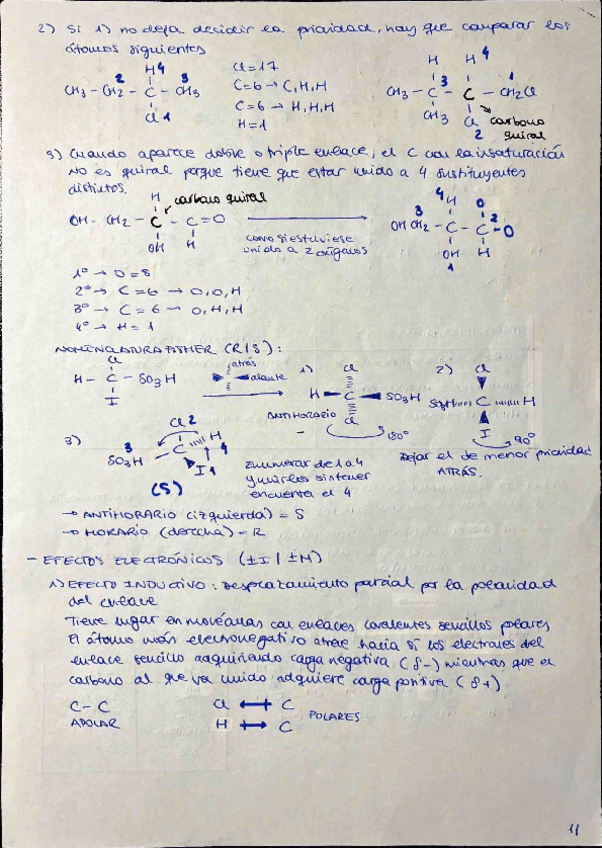 2) Si 1) no deja decidir la prioridad, hay que comparar los
átomos siguientes
H 4
2 3
CH3 - CH2 - C - CH3
Cl 1
Cl = 17
C=6 → C,H,H
C=6 → H,H,H
H=1
H H 4
3 1
CH3 - C - C - CH2Cl
CH3 Cl carbono
2 quiral
3) Cuando aparece doble o triple enlace, el C con la insaturación
no es quiral porque tiene que estar unido a 4 sustituyentes
distintos.
H carbono quiral
OH - CH2 - C - C = O
OH H
como si estuviese
unido a 2 oxígenos
4 H O
3 2
OH CH2 - C - C - O
OH H
1
1º → O = 8
2º → C = 6 → O,O,H
3º → C = 6 → O,H,H
4º → H = 1
NOMENCLATURA FISHER (R/S):
Cl
H - C - SO3H
I
atrás
alante
1) Cl
H C SO3H
Cl
ANTIHORARIO
180º
2) Cl
SO3H C H
I
90º
Dejar el de menor prioridad
ATRÁS.
3) Cl 2
3 H
SO3H - C 4
I 1
(S)
Enumerar de 1 a 4
y unirlos sin tener
en cuenta el 4
→ ANTIHORARIO (izquierda) = S
→ HORARIO (derecha) = R
- EFECTOS ELECTRÓNICOS (±I / ±M)
1) EFECTO INDUCTIVO: Desplazamiento parcial por la polaridad
del enlace
Tiene lugar en moléculas con enlaces covalentes sencillos polares
El átomo más electronegativo atrae hacia sí los electrones del
enlace sencillo adquiriendo carga negativa (δ-) mientras que el
carbono al que va unido adquiere carga positiva (δ+)
C - C
APOLAR
Cl C
H C
POLARES
11